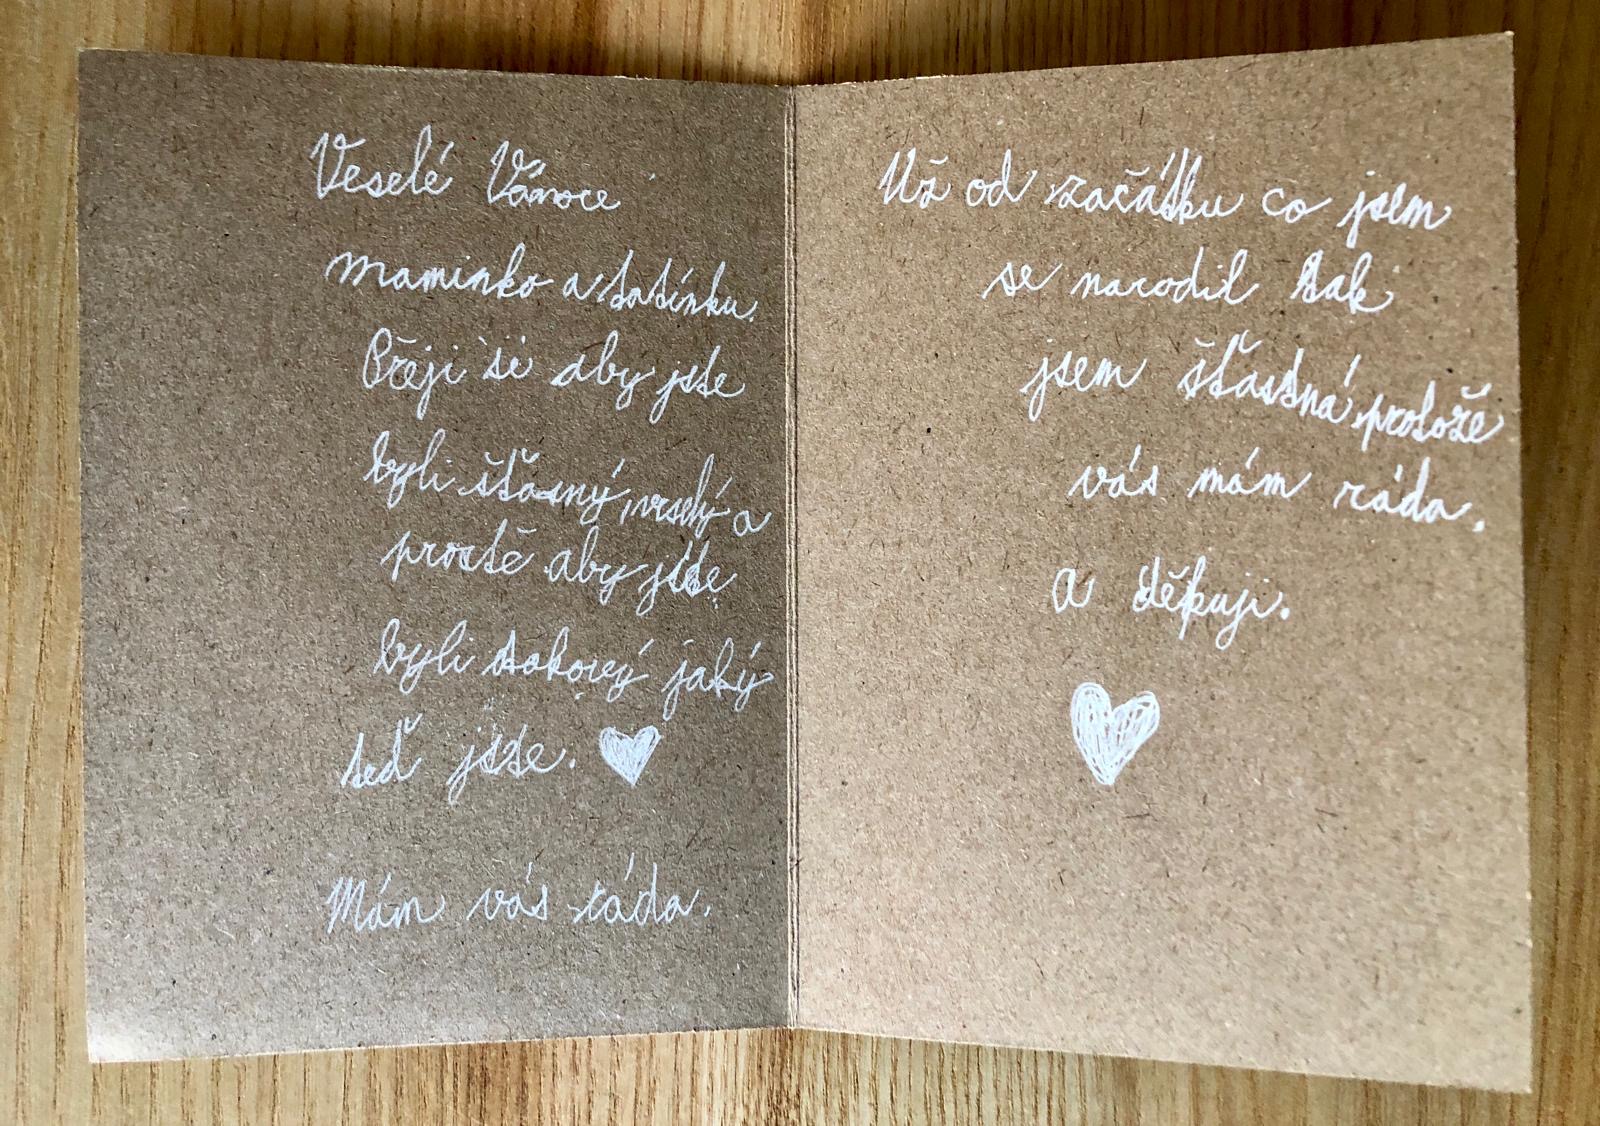 Veselé Vánoce
maminko a tatínku.
Přeji si aby jste
byli šťasný, veselý a
prostě aby jste
byli takový jaký
teď jste.
Mám vás ráda.
Už od začátku co jsem
se narodil tak
jsem šťastná protože
vás mám ráda.
a děkuji.